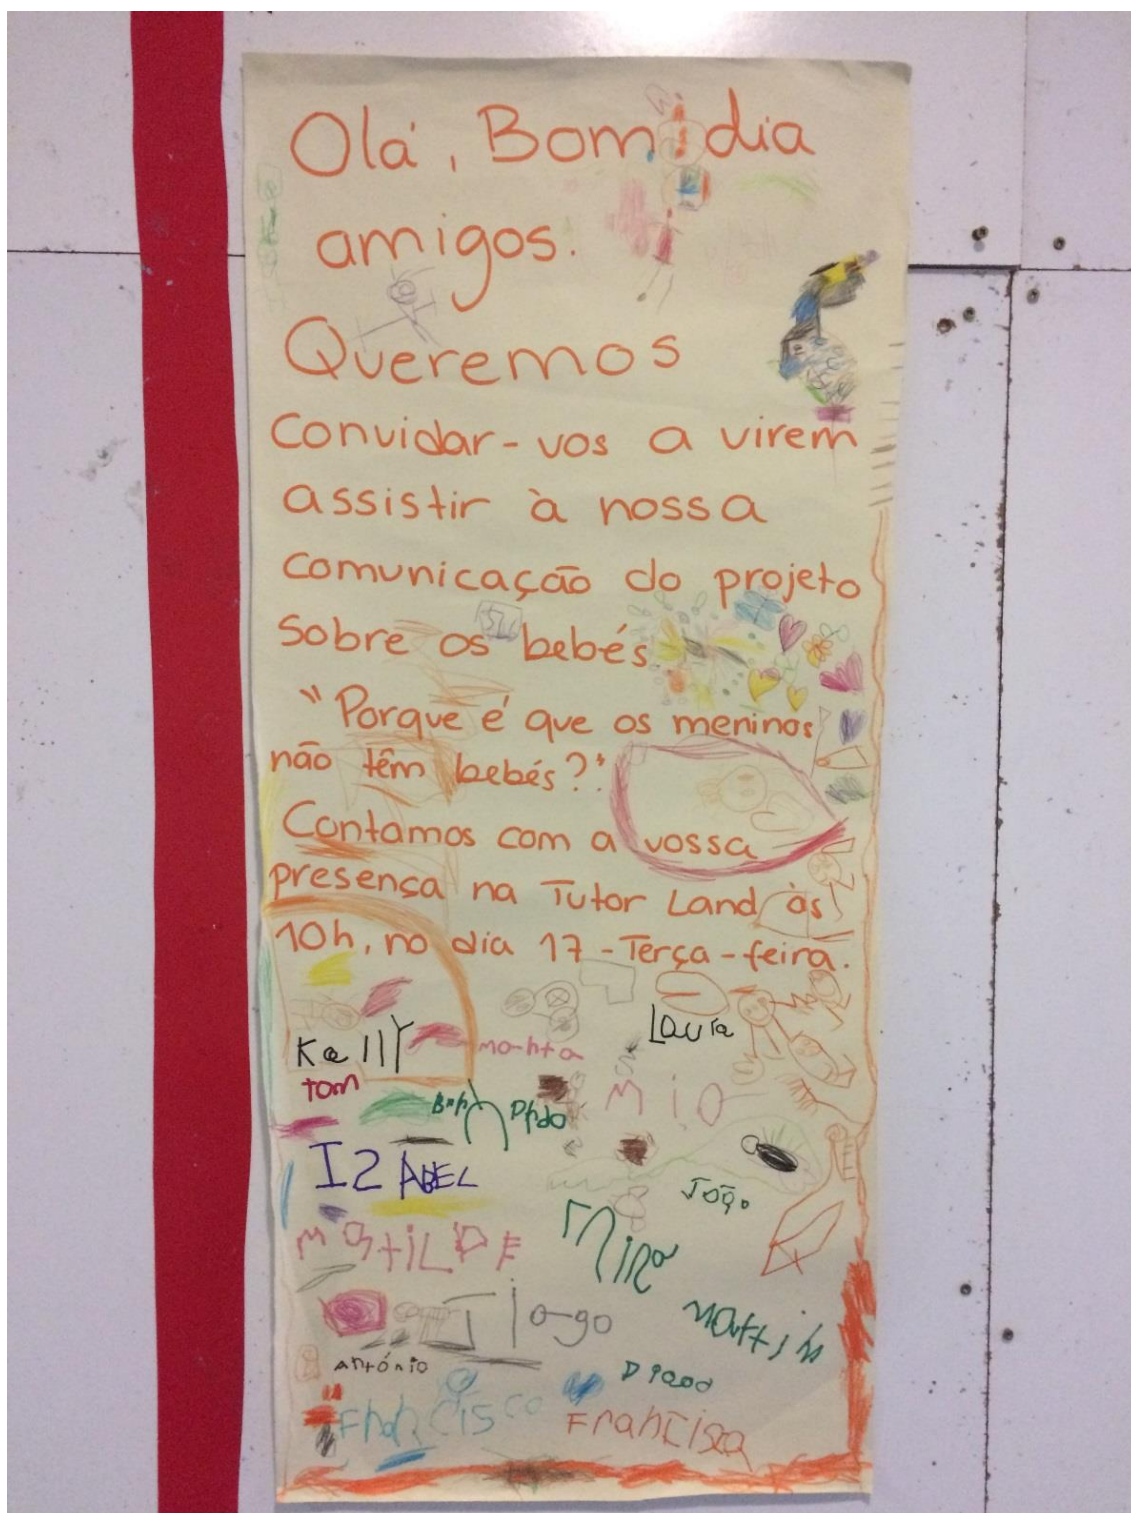 Olá, Bom dia
amigos.
Queremos
convidar-vos a virem
assistir à nossa
comunicação do projeto
sobre os bebés
"Porque é que os meninos
não têm bebés?"
Contamos com a vossa
presença na Tutor Land às
10h, no dia 17 - Terça-feira.
Laura
Kally
tom
mia
IZABEL
João
MatiLDE
Mira
Tiago
António
FRancisco
Francisca